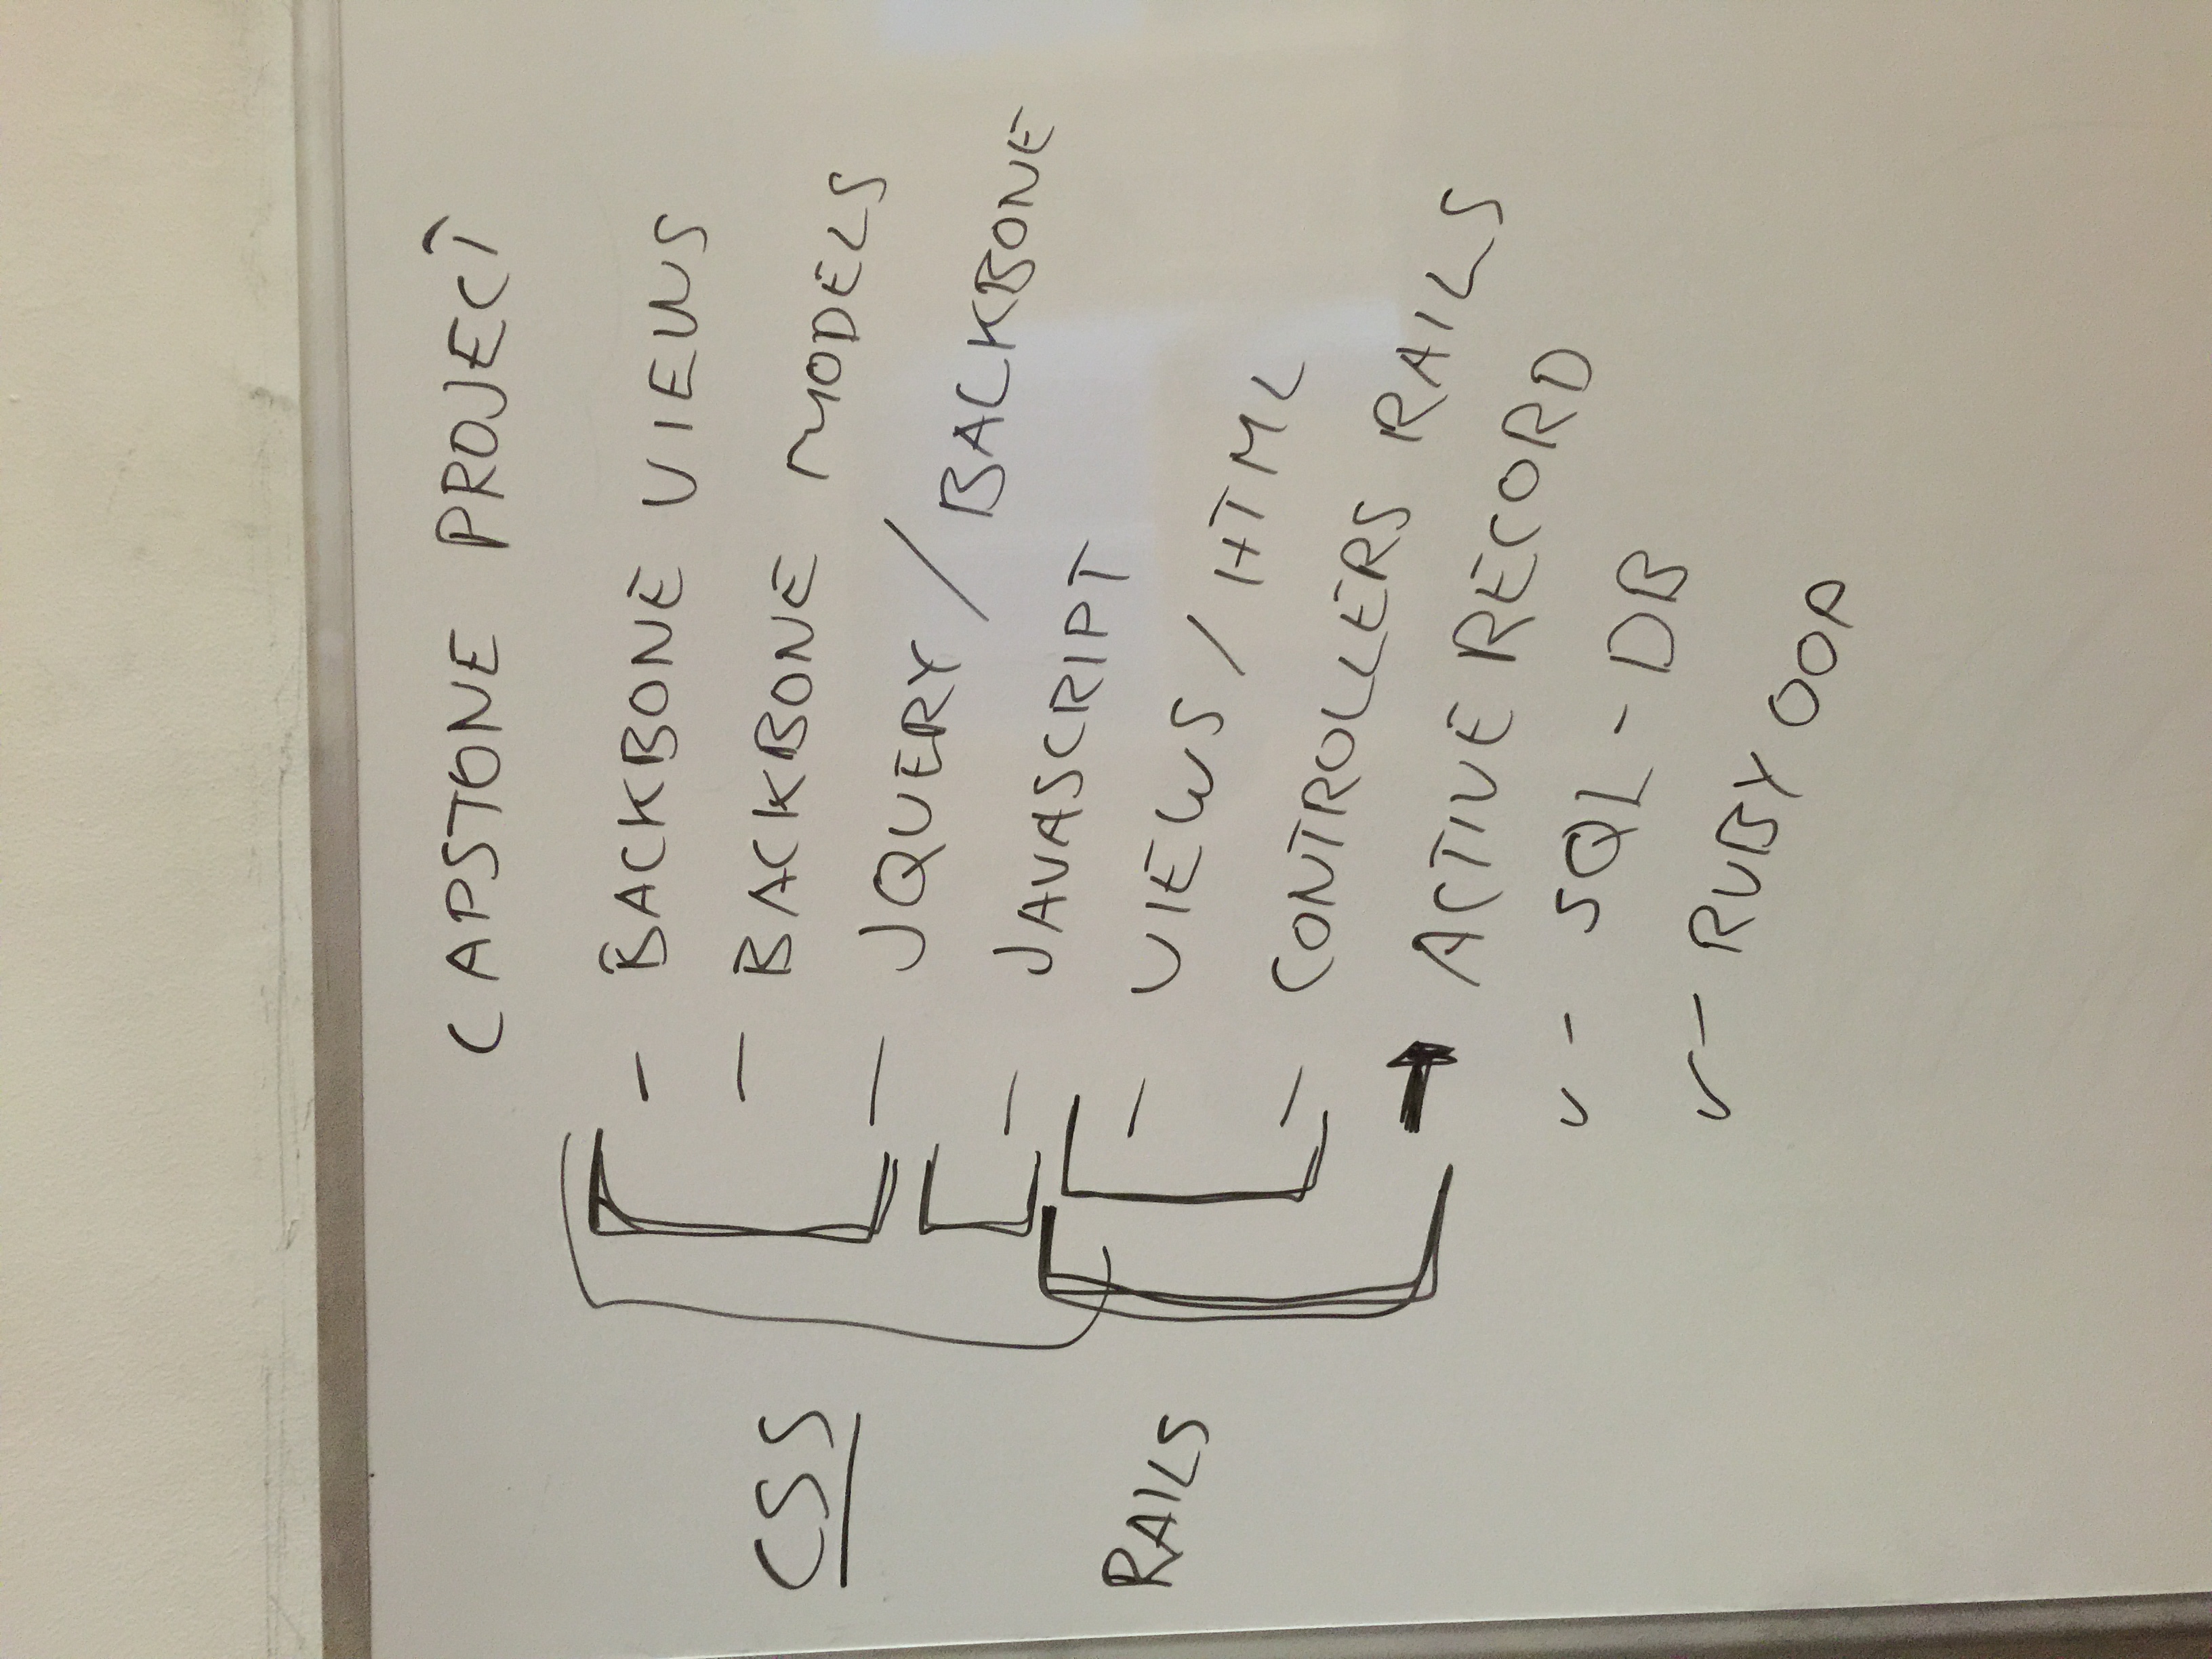 CAPSTONE PROJECT
- BACKBONE VIEWS
- BACKBONE MODELS
CSS
- JQUERY / BACKBONE
- JAVASCRIPT
RAILS
- VIEWS / HTML
- CONTROLLERS RAILS
→ ACTIVE RECORD
✓ - SQL - DB
✓ - RUBY OOP